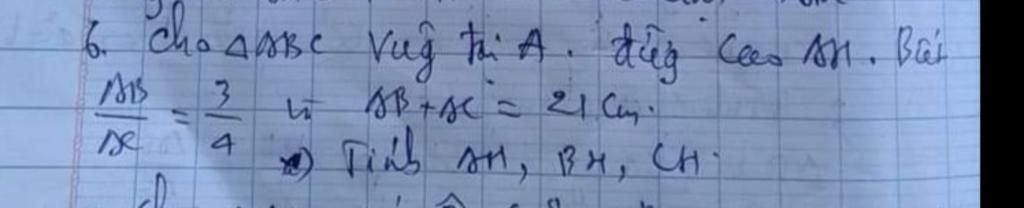 6. Cho △ABC vug tại A. đừg cao AH. Biết
AB/AC = 3/4 và AB + AC = 21 Cm.
Tính AH, BH, CH.